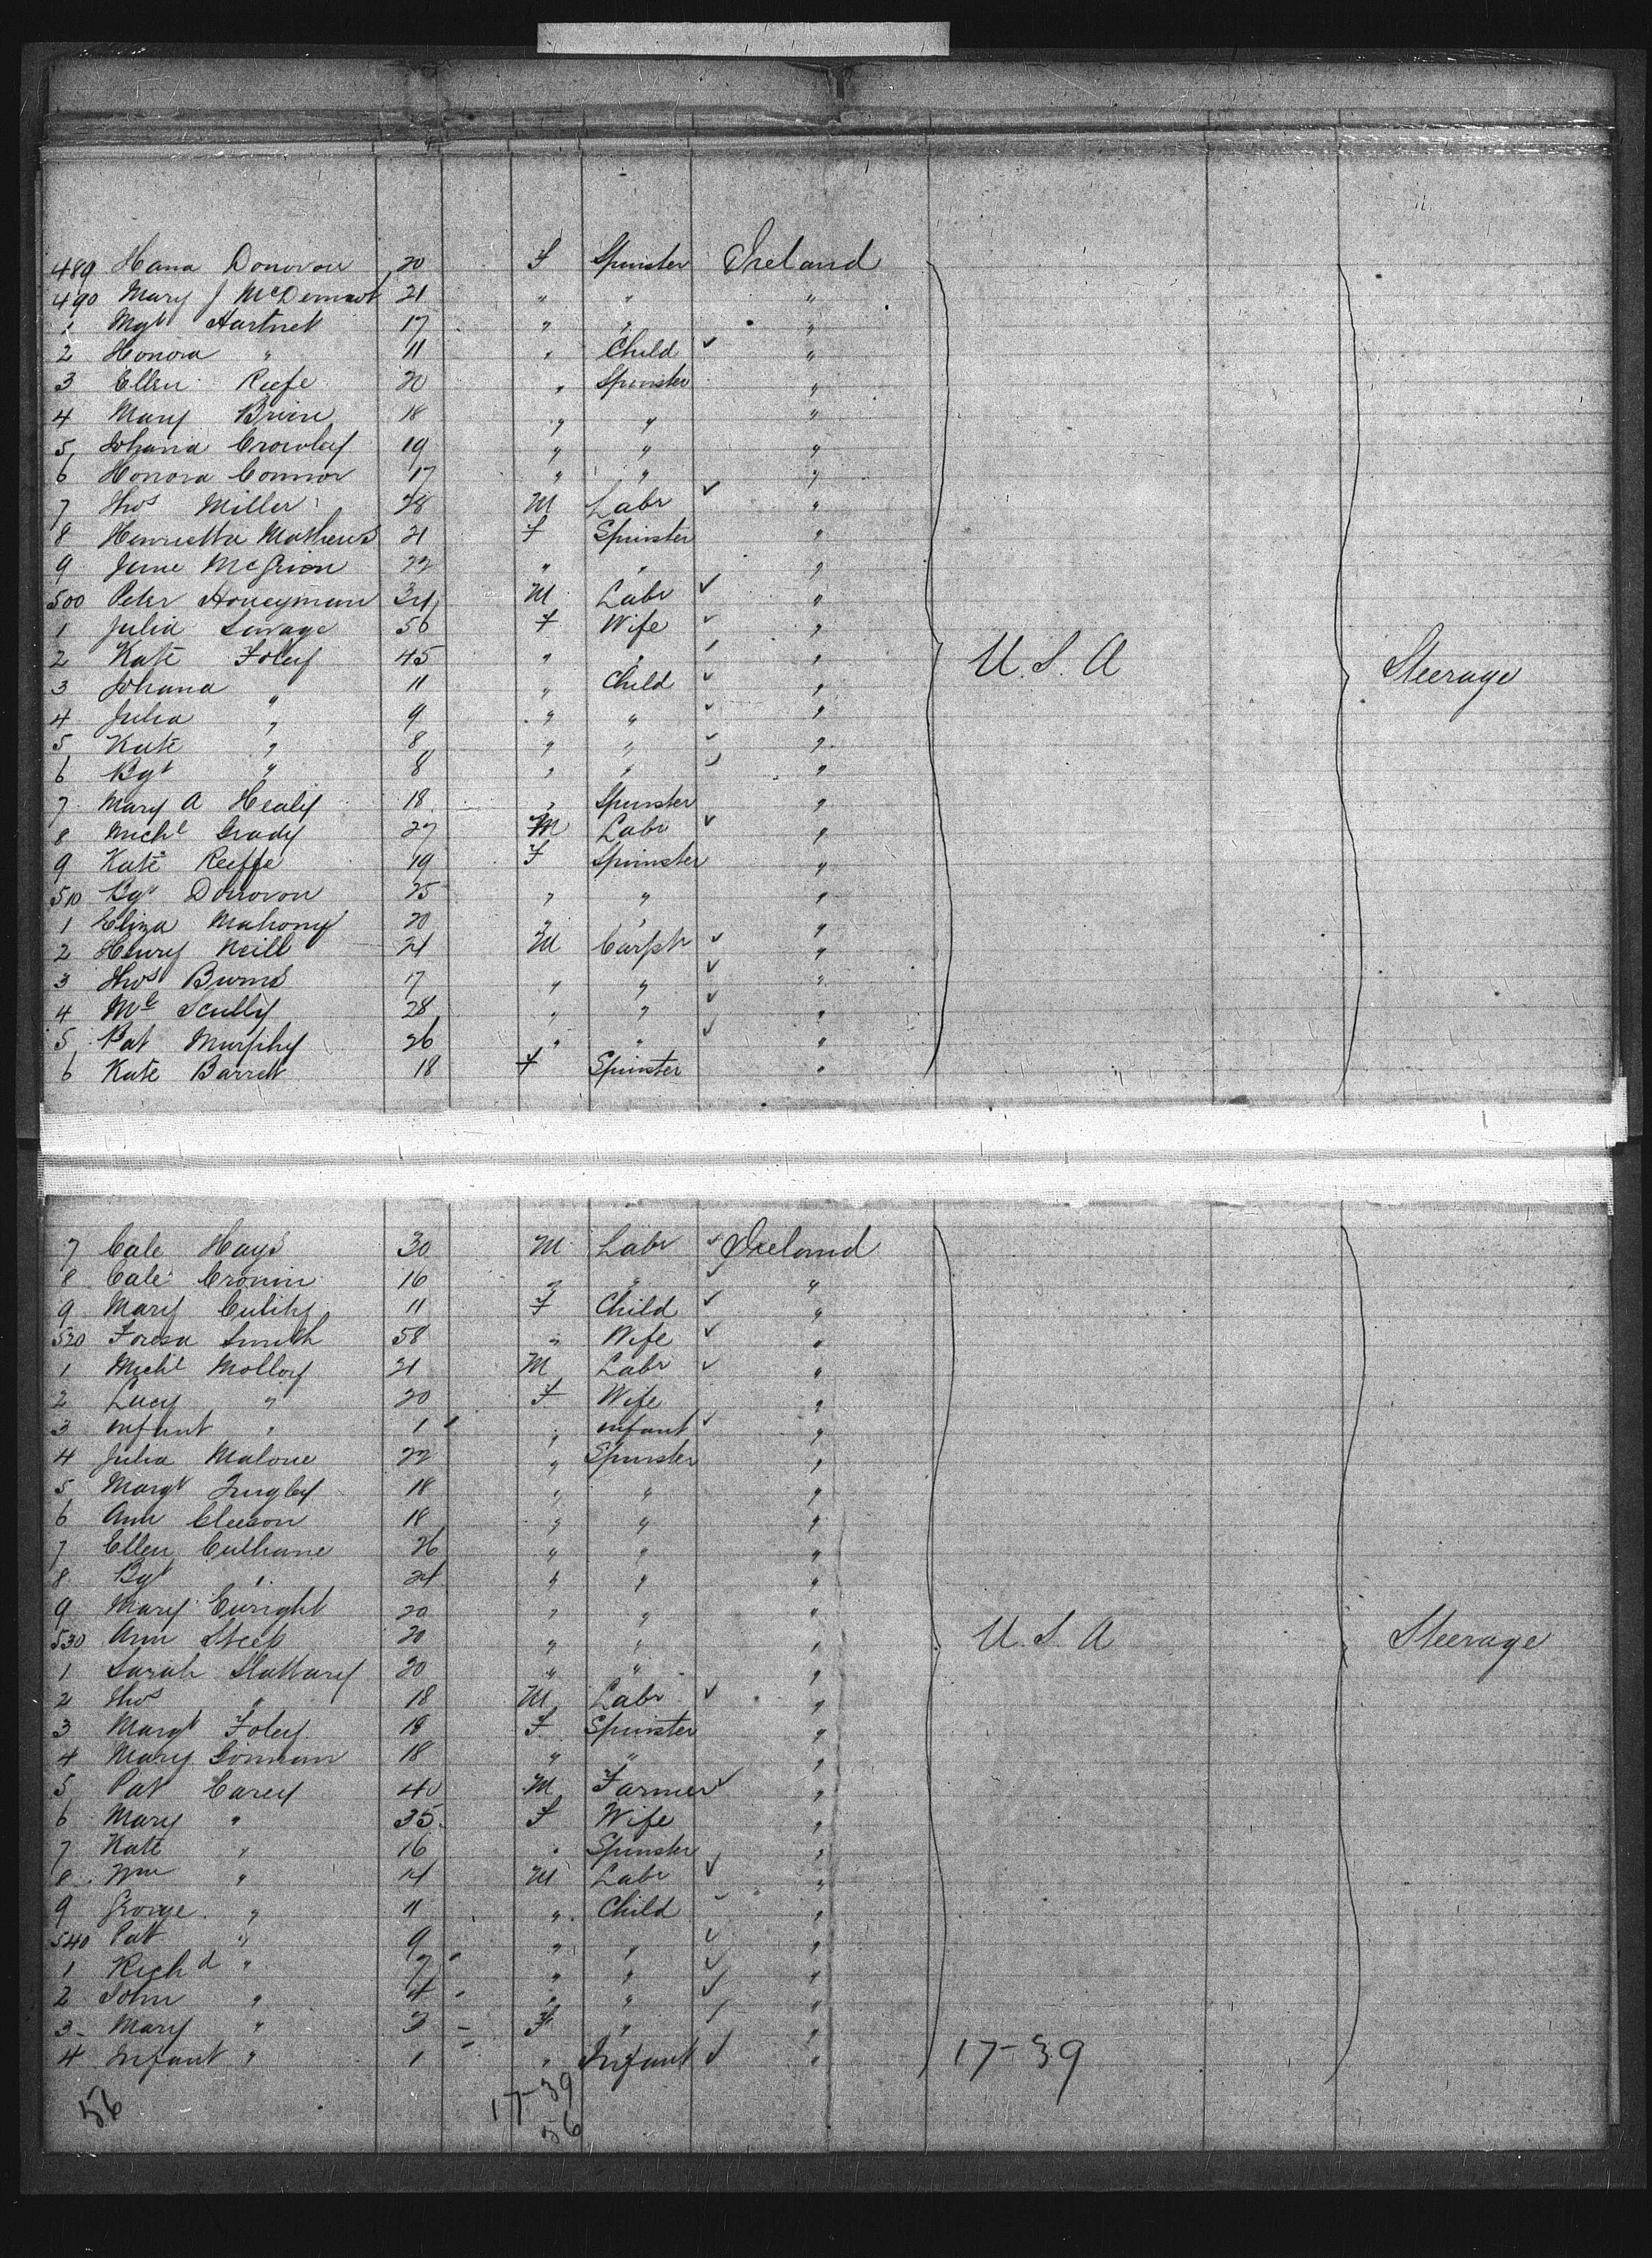 489 Hana Donovan 20 F Spinster Ireland
490 Mary J McDermot 21 " " "
1 Mgt Hartnet 17 " " "
2 Honora " 11 " Child ✓ "
3 Ellen Keefe 20 " Spinster "
4 Mary Brien 18 " " "
5 Johana Crowley 19 " " "
6 Honora Connor 17 " " "
7 Thos Miller 28 M Labr ✓ "
8 Henrietta Mathews 21 F Spinster "
9 Jane 22 " " "
500 Peter Honeyman 34 M Labr ✓ "
1 Julia Savage 56 F Wife ✓ "
2 Kate Foley 45 " " ✓ " U.S.A Steerage
3 Johana " 11 " Child ✓ "
4 Julia " 9 " " ✓ "
5 Kate " 8 " " ✓ "
6 Bgt " 8 " " ✓ "
7 Mary A Healy 18 " Spinster "
8 Michl Grady 27 M Labr ✓ "
9 Kate Keeffe 19 F Spinster "
510 Bgt Donovon 25 " " "
1 Eliza Mahony 20 " " "
2 Henry Neill 21 M Carptr ✓ "
3 Thos Burns 17 " " ✓ "
4 Ml Scully 28 " " ✓ "
5 Pat Murphy 26 " " ✓ "
6 Kate Barrett 18 F Spinster "
7 Cale Hays 30 M Labr ✓ Ireland
8 Cale Cronin 16 " " ✓ "
9 Mary 11 F Child ✓ "
520 Smith 58 " Wife ✓ "
1 Michl Molloy 21 M Labr ✓ "
2 Lucy " 20 F Wife "
3 infant " 1 " infant ✓ "
4 Julia Malone 22 " Spinster "
5 Margt 18 " " "
6 Ann Gleeson 18 " " "
7 Ellen Culhane 26 " " "
8 Bgt " 24 " " "
9 Mary Enright 20 " " "
530 Ann 20 " " " U.S.A Steerage
1 Sarah Slattary 20 " " "
2 Thos " 18 M Labr ✓ "
3 Margt Foley 18 F Spinster "
4 Mary Gorman 18 " " "
5 Pat Carey 40 M Farmer ✓ "
6 Mary " 35 F Wife "
7 Kate " 16 " Spinster "
8 Wm " 14 M Labr ✓ "
9 George " 11 " Child ✓ "
540 Pat " 9 " " ✓ "
1 Richd " 7 " " ✓ "
2 John " 4 " " ✓ "
3 Mary " 3 F " ✓ "
4 Infant " 1 " Infant ✓ " 17-39
56 17-39
56